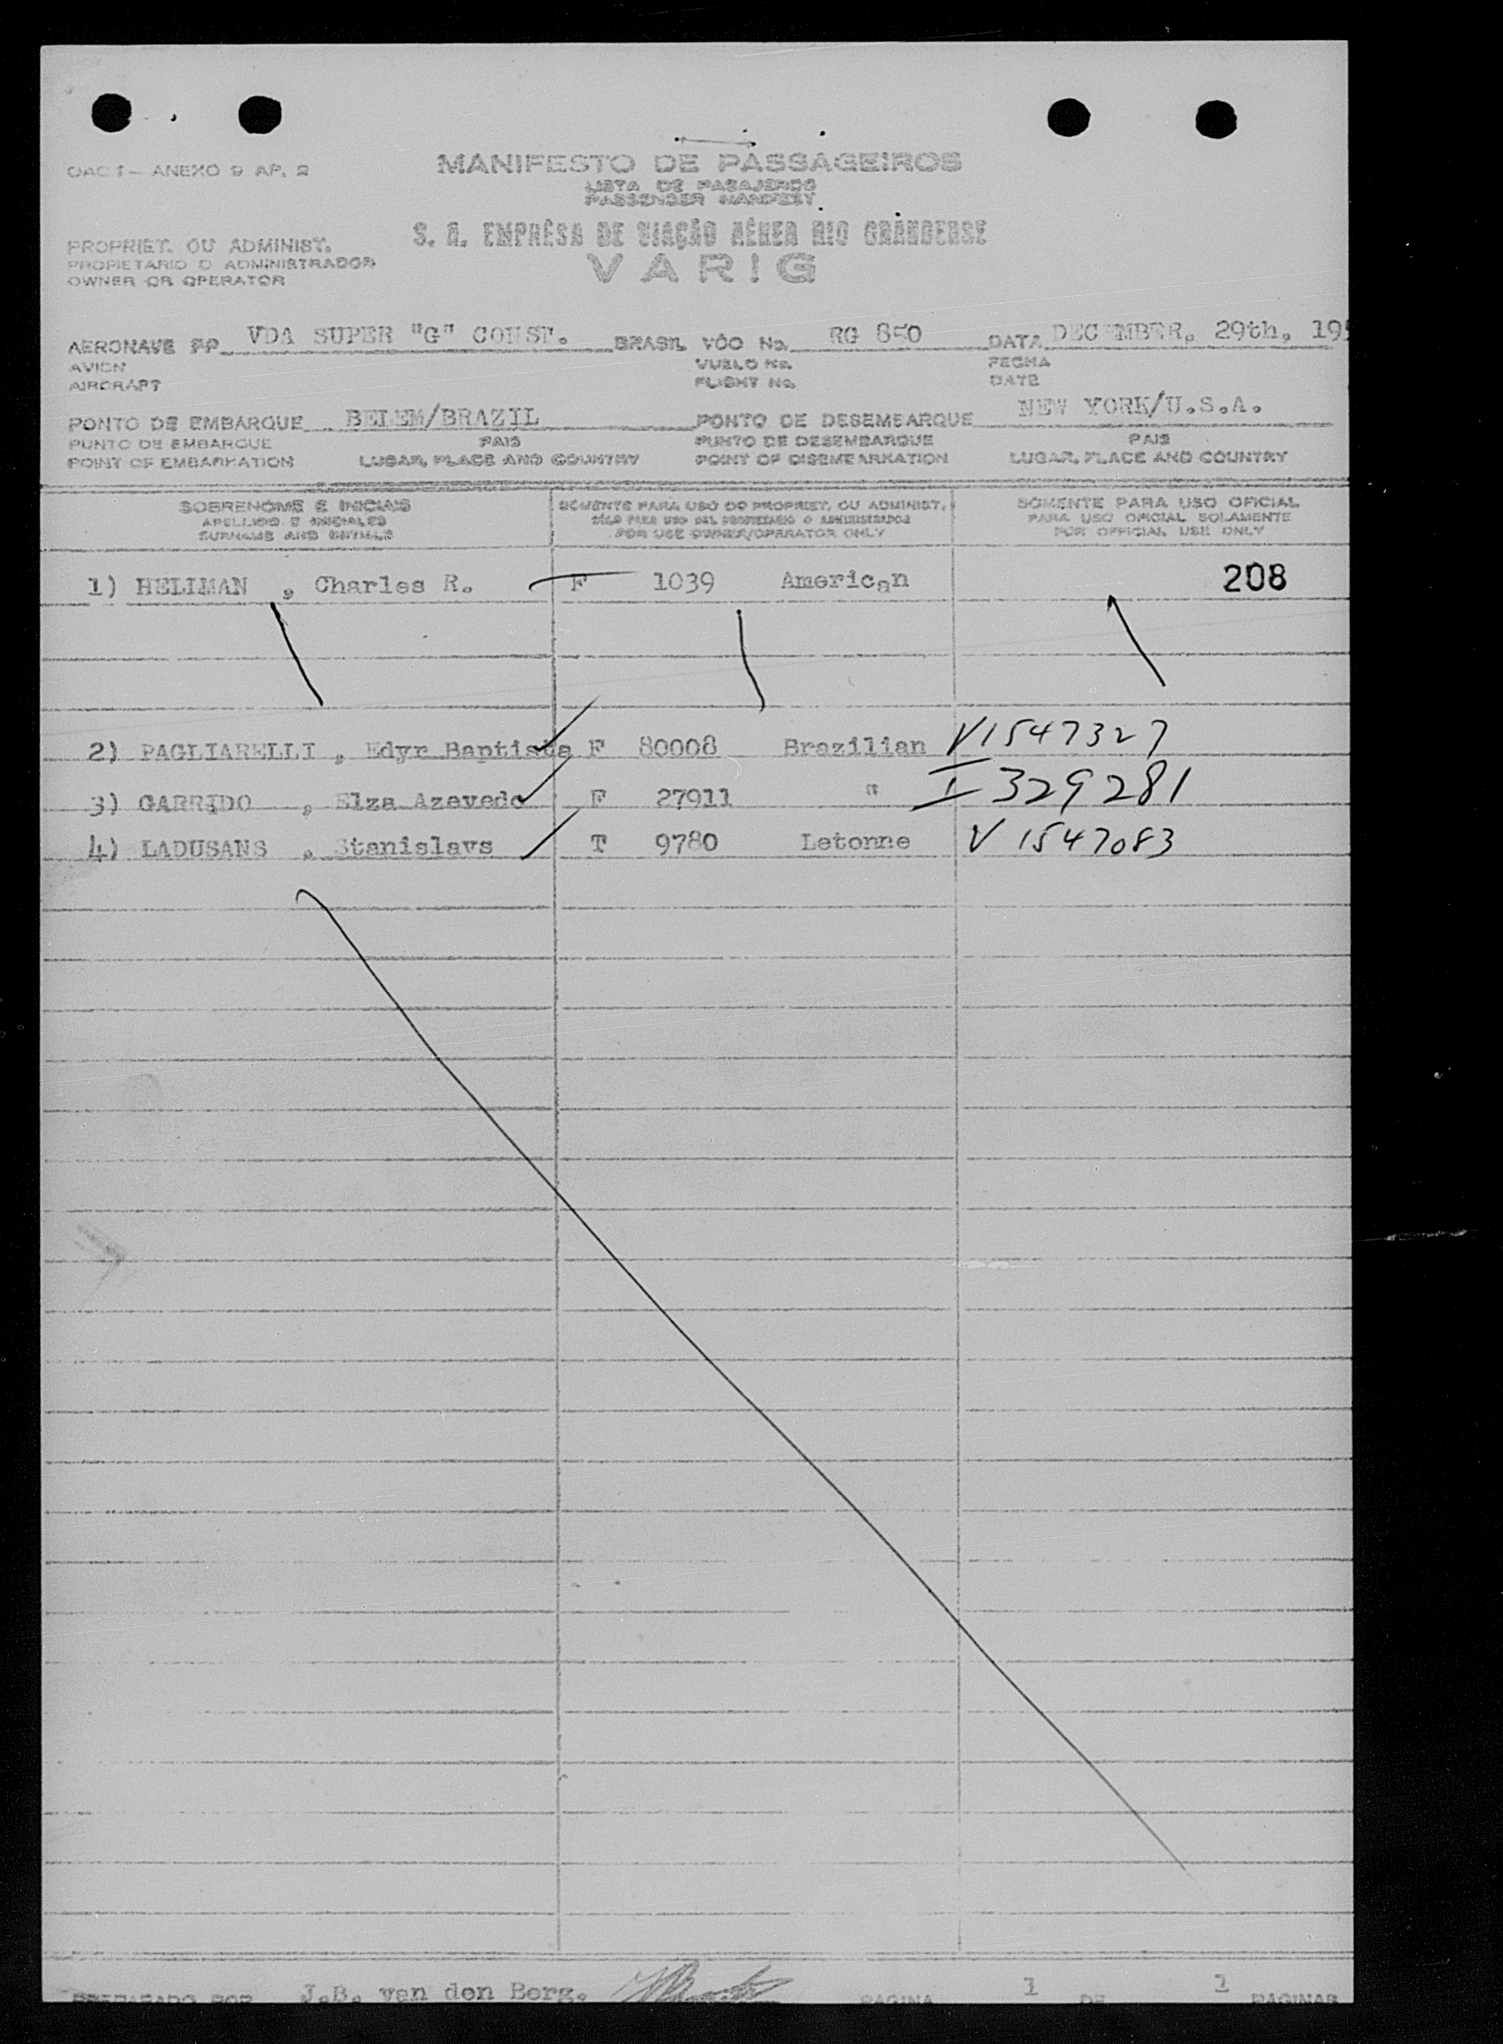 OACI — ANEXO 9 AP. 2
MANIFESTO DE PASSAGEIROS
LISTA DE PASAJEROS
PASSENGER MANIFEST
S. A. EMPRÊSA DE VIAÇÃO AÉREA RIO GRANDENSE
VARIG
PROPRIET. OU ADMINIST.
PROPIETARIO O ADMINISTRADOR
OWNER OR OPERATOR
AERONAVE PP VDA SUPER "G" CONST. BRASIL VÔO No. RG 850 DATA DECEMBER, 29th, 195
AVION VUELO No. FECHA
AIRCRAFT FLIGHT No. DATE
PONTO DE EMBARQUE BELEM/BRAZIL PONTO DE DESEMBARQUE NEW YORK/U.S.A.
PUNTO DE EMBARQUE PAIS PUNTO DE DESEMBARQUE PAIS
POINT OF EMBARKATION LUGAR, PLACE AND COUNTRY POINT OF DISEMBARKATION LUGAR, PLACE AND COUNTRY
SOBRENOME E INICIAIS SOMENTE PARA USO DO PROPRIET. OU ADMINIST. SOMENTE PARA USO OFICIAL
APELLIDO E INICIALES SÓLO PARA USO DEL PROPIETARIO O ADMINISTRADOR PARA USO OFICIAL SOLAMENTE
SURNAME AND INITIALS FOR USE OWNER/OPERATOR ONLY FOR OFFICIAL USE ONLY
1) HELLMAN , Charles R. F 1039 American 208
2) PAGLIARELLI , Edyr Baptista F 80008 Brazilian V1547327
3) GARRIDO , Elza Azevedo F 27911 " I 329281
4) LADUSANS , Stanislavs T 9780 Letonne V 1547083
PREPARADO POR J.B. van den Berg. PAGINA 1 DE 1 PAGINAS